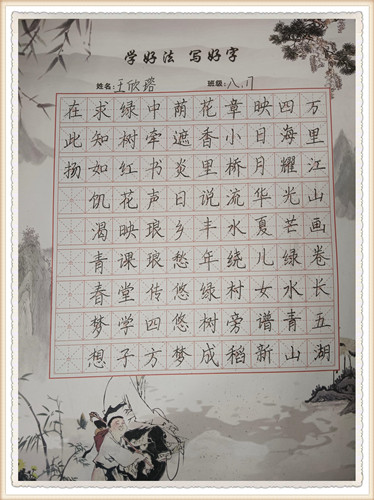 学好法 写好字
姓名:王欣
班级:八
万里江山画卷长五湖
四海耀光芒绿水青山
映日月华夏儿女谱新
章小桥流水绕村旁稻
花香里说丰年绿树成
荫遮炎日乡愁悠悠梦
中牵书声琅琅传四方
绿树红花映课堂学子
求知如饥渴青春梦想
在此扬